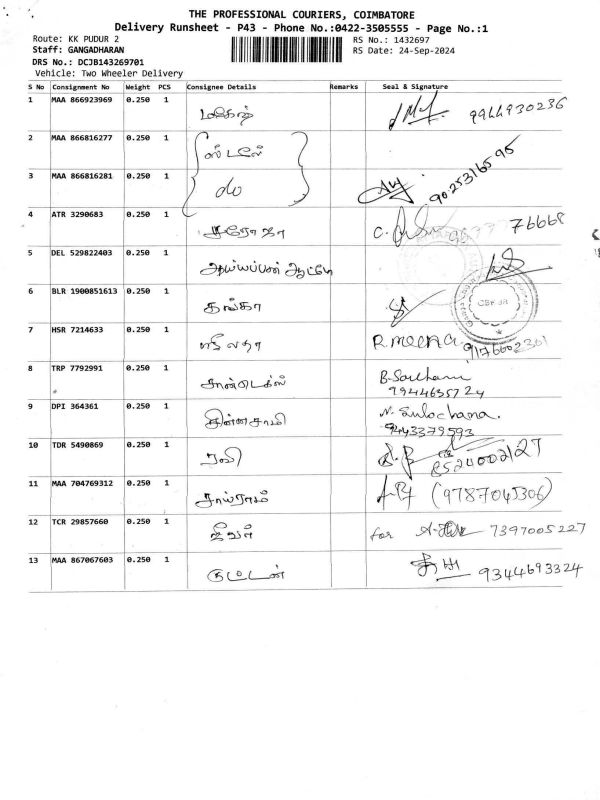 THE PROFESSIONAL COURIERS, COIMBATORE
Delivery Runsheet - P43 - Phone No.:0422-3505555 - Page No.:1
Route: KK PUDUR 2 RS No.: 1432697
Staff: GANGADHARAN RS Date: 24-Sep-2024
DRS No.: DCJB143269701
Vehicle: Two Wheeler Delivery
S No Consignment No Weight PCS Consignee Details Remarks Seal & Signature
1 MAA 866923969 0.250 1 மகேஷ் 9944930236
2 MAA 866816277 0.250 1
3 MAA 866816281 0.250 1 do 9025316595
4 ATR 3290683 0.250 1 சரோஜா 76668
5 DEL 529822403 0.250 1 அய்யப்பன்
6 BLR 1900851613 0.250 1 தங்கா CBE JB
7 HSR 7214633 0.250 1 ஸ்ரீலதா R. meena 9176602361
8 TRP 7792991 0.250 1 9944635724
9 DPI 364361 0.250 1 சின்னசாமி N. Sulochana. 9443379593
10 TDR 5490869 0.250 1 ரவி 85240002127
11 MAA 704769312 0.250 1 சாய்ராம் (9787045306)
12 TCR 29857660 0.250 1 for 7397005227
13 MAA 867067603 0.250 1 குட்டன் 9344693324